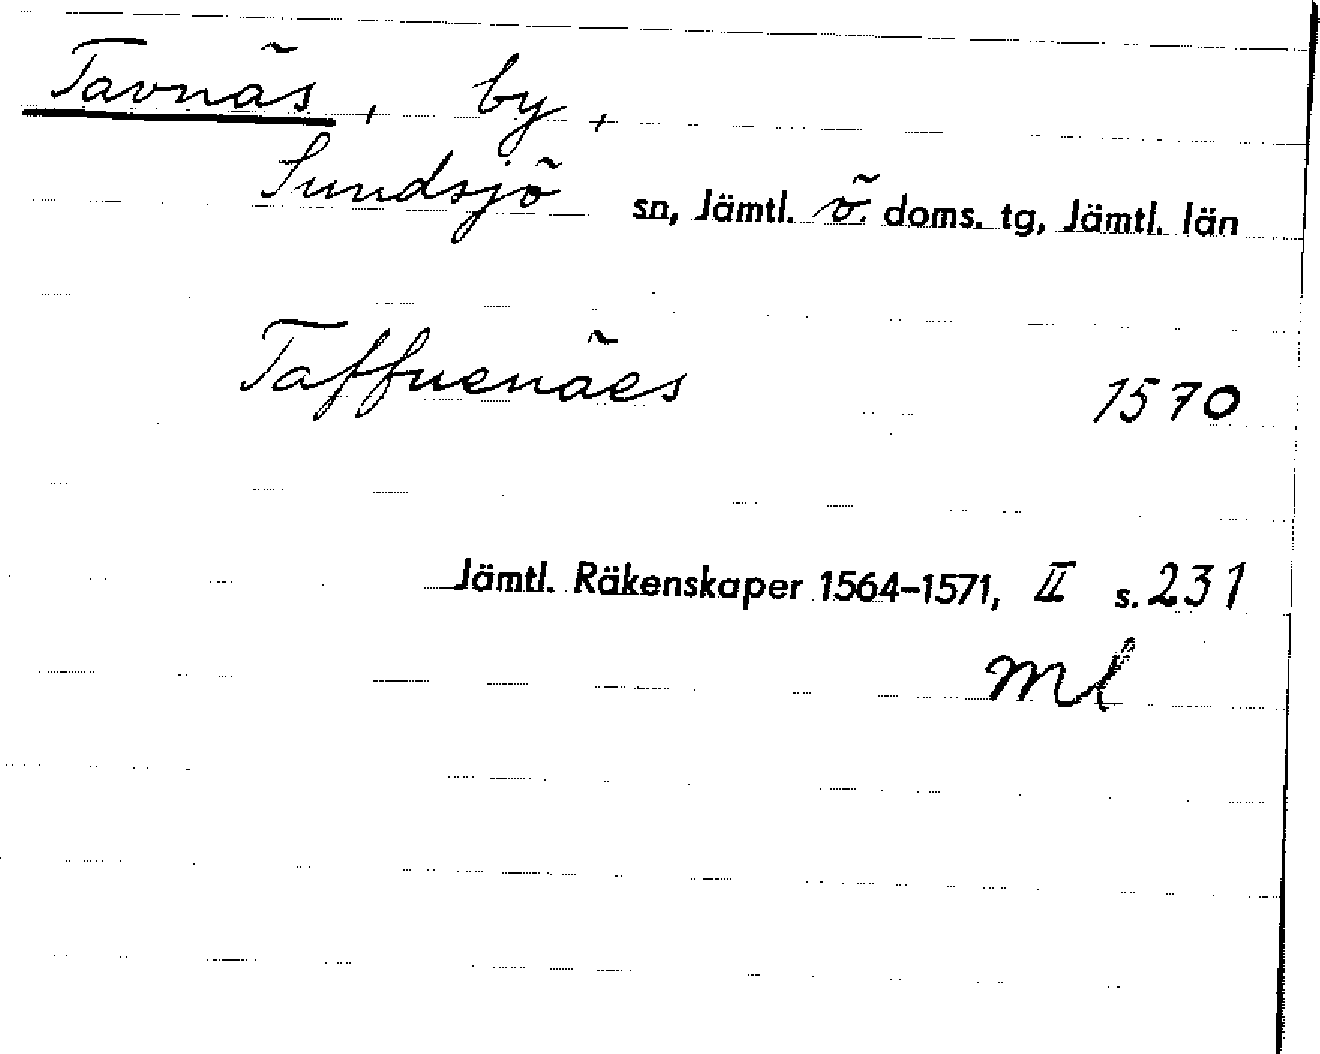 Tavnäs, by,
Sundsjö sn, Jämtl. ö. doms. tg, Jämtl. län
Taffuenäes 1570
Jämtl. Räkenskaper 1564-1571, II s. 231
ml